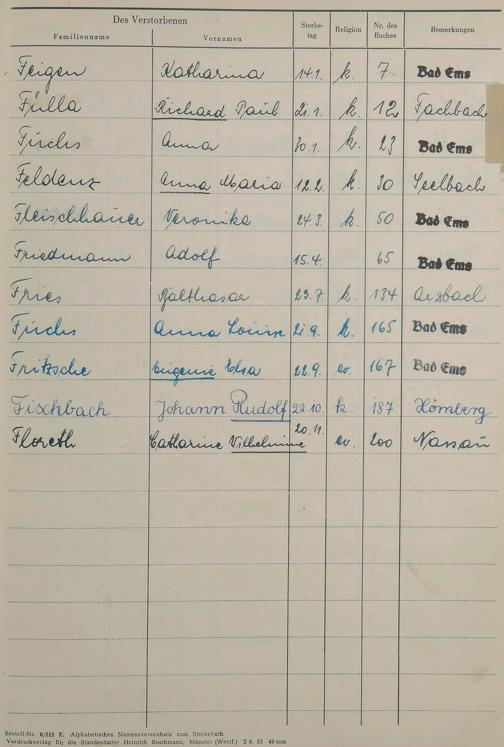 Des Verstorbenen
Familienname Vornamen Sterbe-tag Religion Nr. des Buches Bemerkungen
Feigen Katharina 14.1. k. 7 Bad Ems
Fülla Richard Paul 21.1. k. 12 Fachbach
Fuchs Anna 30.1. k. 23 Bad Ems
Feldenz Anna Maria 12.2. k. 30 Seelbach
Fleischhauer Veronika 24.3. k. 50 Bad Ems
Friedmann Adolf 15.4. 65 Bad Ems
Fries Balthasar 23.7. k. 134 Arzbach
Fuchs Anna Louise 21.9. k. 165 Bad Ems
Fritzsche Eugenie Elsa 22.9. ev. 167 Bad Ems
Fischbach Johann Rudolf 22.10. k. 187 Hömberg
Floreth Catharine Wilhelmine 20.11. ev. 200 Nassau
Bestell-Nr. 6/215 E. Alphabetisches Namensverzeichnis zum Sterbebuch
Vordruckverlag für die Standesämter Heinrich Buschmann, Münster (Westf.) 2 6. 53 43 mm